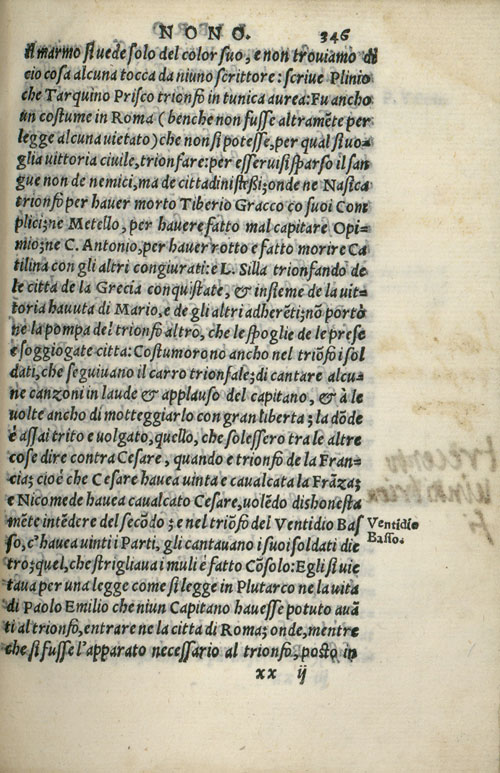 NONO. 346
il marmo si uede solo del color suo, e non trouiamo di
cio cosa alcuna tocca da niuno scrittore: scriue Plinio
che Tarquino Prisco trionfò in tunica aurea: Fu ancho
un costume in Roma (benche non fusse altramẽte per
legge alcuna uietato) che non si potesse, per qual si uo-
glia uittoria ciuile, trionfare: per esseruisi sparso il san
gue non de nemici, ma de cittadini stessi; onde ne Nasica
trionfò per hauer morto Tiberio Gracco co suoi Com
plici; ne Metello, per hauere fatto mal capitare Opi-
mio; ne C. Antonio, per hauer rotto e fatto morire Ca
tilina con gli altri congiurati: e L. Silla trionfando de
le citta de la Grecia conquistate, & insieme de la uit-
toria hauuta di Mario, e de gli altri adherẽti; nõ portò
ne la pompa del trionfo altro, che le spoglie de le prese
e soggiogate citta: Costumorono ancho nel triõfo i sol
dati, che seguiuano il carro trionfale; di cantare alcu-
ne canzoni in laude & applauso del capitano, & à le
uolte ancho di motteggiarlo con gran liberta; la dõde
è assai trito e uolgato, quello, che solessero tra le altre
cose dire contra Cesare, quando e trionfò de la Fran-
cia; cioè che Cesare hauea uinta e caualcata la Frãza;
e Nicomede hauea caualcato Cesare, uolẽdo dishonesta
mẽte intẽdere del secõdo; e nel triõfo del Ventidio Bas
so, c'hauea uinti i Parti, gli cantauano i suoi soldati die
tro; quel, che strigliaua i muli è fatto Cõsolo: Egli si uie
taua per una legge come si legge in Plutarco ne la uita
di Paolo Emilio che niun Capitano hauesse potuto auã
ti al trionfo, entrare ne la citta di Roma; onde, mentre
che si fusse l'apparato necessario al trionfo, posto in
xx ij
Ventidio
Basso.